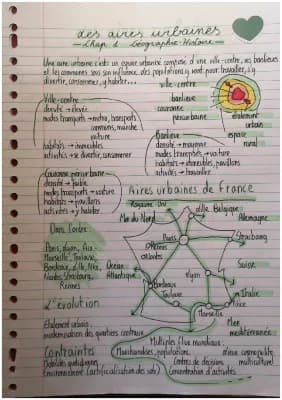 des aires urbaines
Chap. 1 Géographie-Histoire
Une aire urbaine c'est un espace urbanisé composé d'une ville-centre, ses banlieues
et les communes sous son influence. Des populations y vont pour travailler, s'y
divertir, consommer, y habiter...
Ville-centre
densité → élevée
modes transports → métro, transports
communs, marche
voiture
habitats → immeubles
activités → se divertir, consommer
ville-centre
banlieue
couronne
périurbaine
étalement
urbain
espace
rural
Banlieue
densité → moyenne
modes transports → voiture
habitats → immeubles, pavillons
activités → travailler
Couronne périurbaine
densité → faible
modes transports → voiture
habitats → pavillons
activités → y habiter
Aires urbaines de France
Royaume Uni
Mer du Nord
Lille
Belgique
Allemagne
Dans l'ordre
Paris, Lyon, Aix-
Marseille, Toulouse,
Bordeaux, Lille, Nice,
Nantes, Strasbourg,
Rennes
Paris
Strasbourg
Rennes
Nantes
Océan
Atlantique
Lyon
Suisse
Bordeaux
Toulouse
Italie
Nice
Marseille
Mer
méditerranée
L'évolution
Etalement urbain
modernisation des quartiers centraux
Multiples flux mondiaux
Marchandises, populations
Centres de décision
Concentration d'activités
Milieu cosmopolite
multiculturel
Contraintes
Mobilités quotidiennes
Environnement (artificialisation des sols)